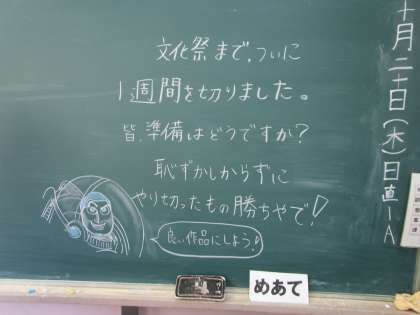 文化祭まで、ついに
1週間を切りました。
皆、準備はどうですか？
恥ずかしからずに
やり切ったもの勝ちやで！
良い作品にしよう♪
十月二十日（木）日直1A
めあて